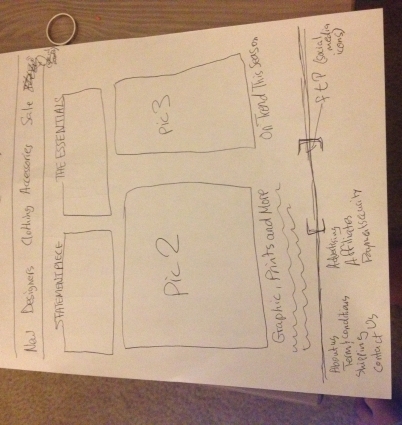 New Designers Clothing Accessories Sale
STATEMENT PIECE THE ESSENTIALS
Pic 2
Pic 3
Graphic, Prints and More
On Trend This Season
f t P (social media icons)
About us
Terms/conditions
Shipping
Contact Us
Advertising
Affiliates
Payment security